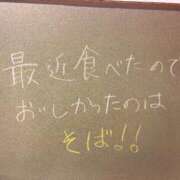 最近食べたので
おいしかったのは
そば!!